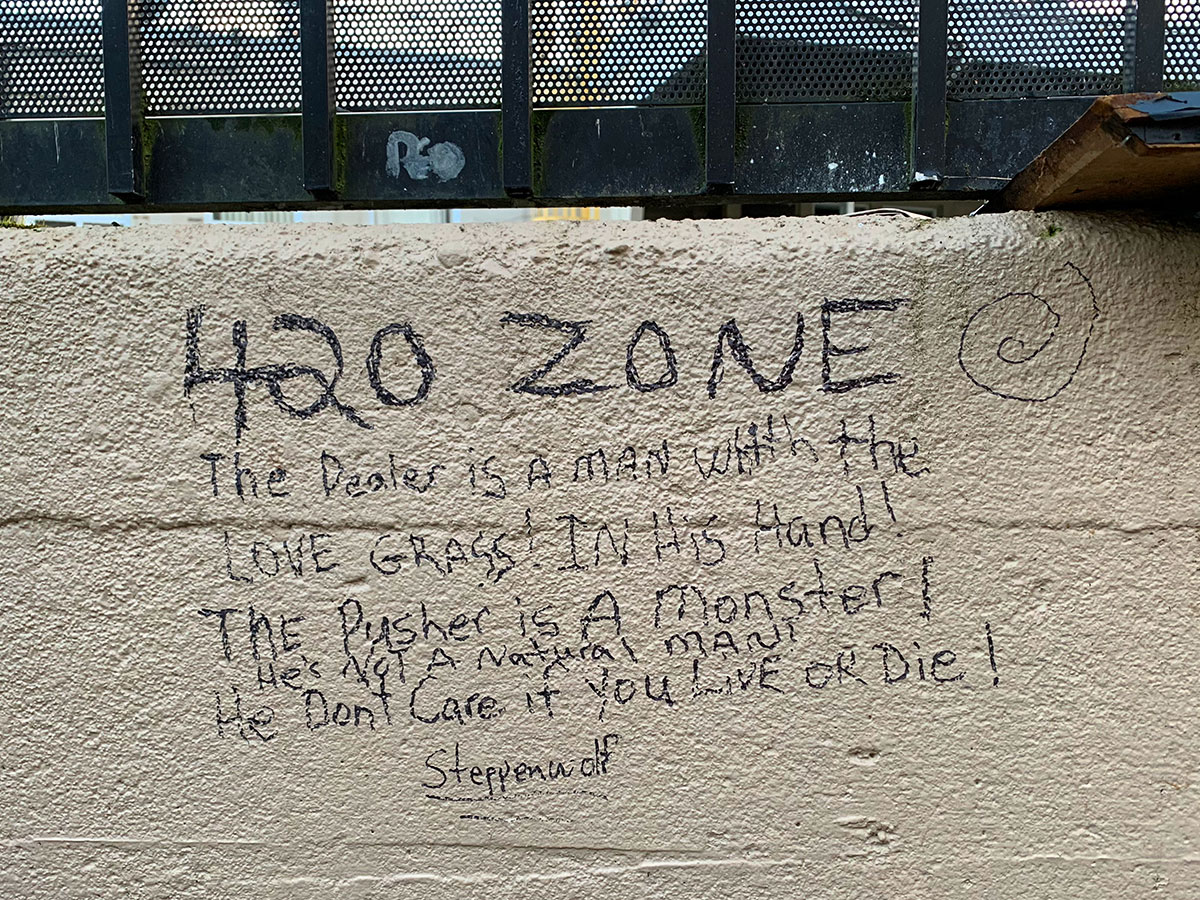 420 ZONE
The Dealer is A MAN With the
LOVE GRASS! IN His Hand!
THE Pusher is A Monster!
He's NOT A Natural MAN!
He Dont Care if You LIVE OR Die!
Steppenwolf